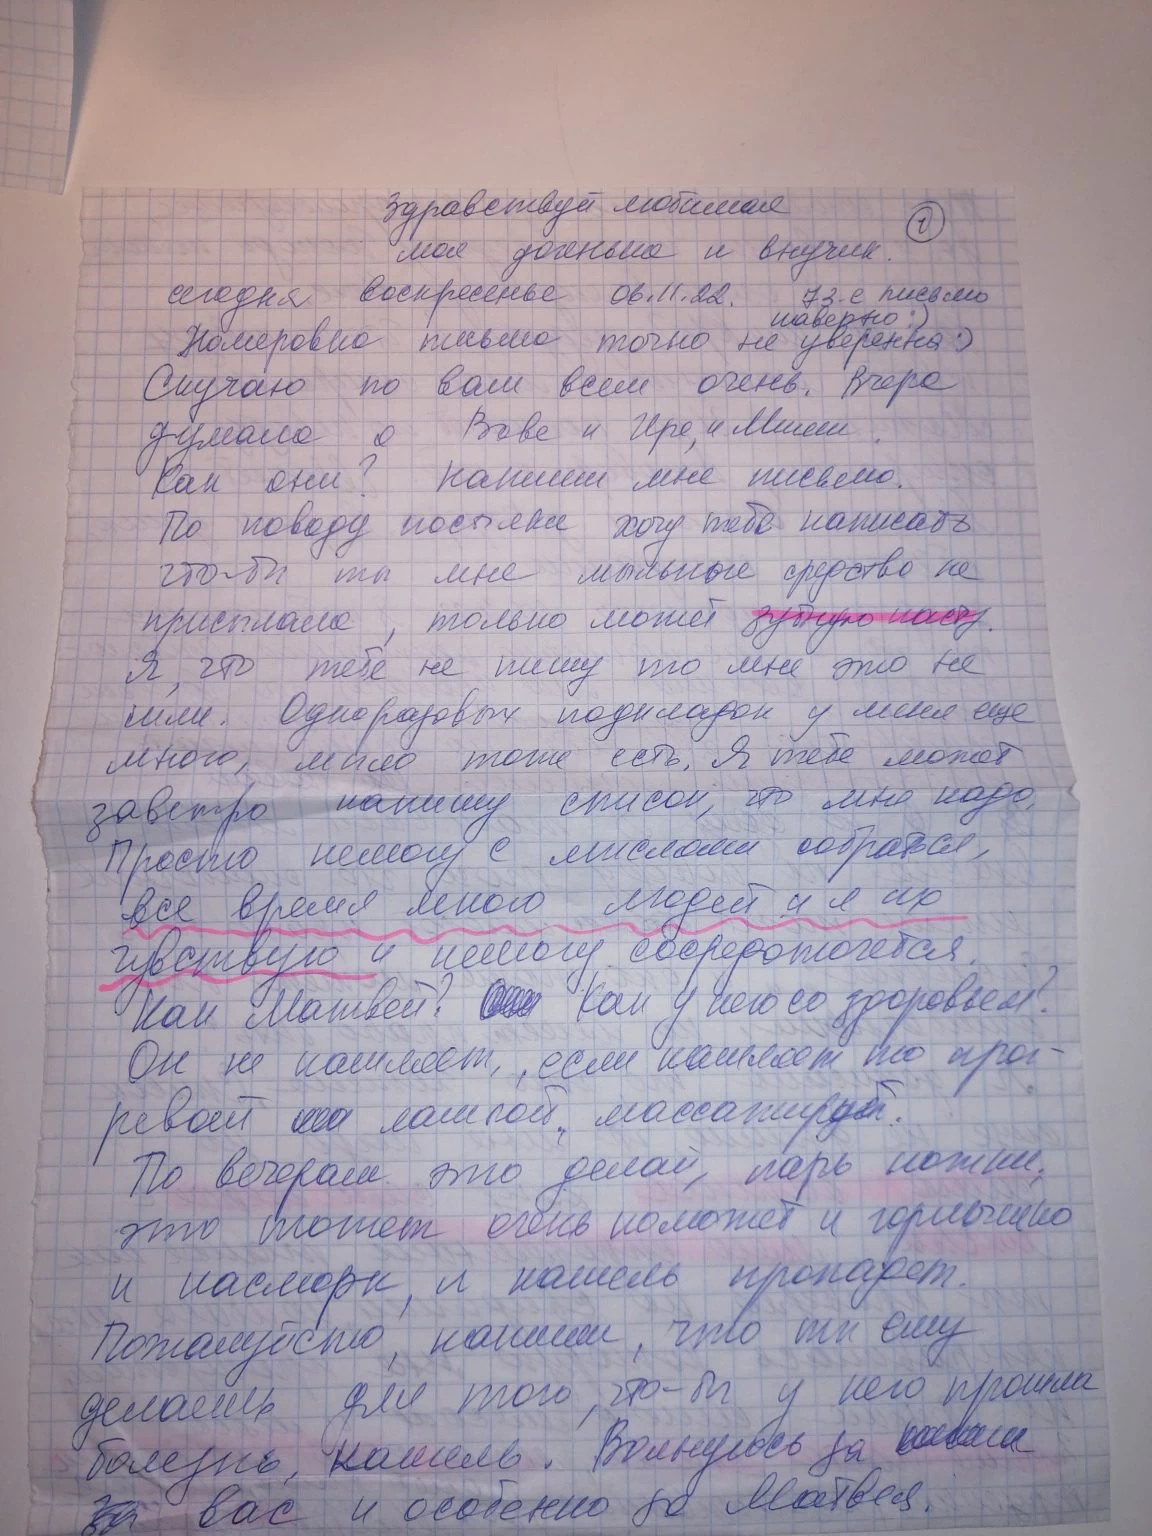 Здравствуй любимая
1
моя доченька и внучик.
сегодня воскресенье 06.11.22. 73-е письмо
наверно:)
Номеровка письма точно не уверенна:)
Скучаю по вам всем очень. Вчера
думала о Вове и Ире, и Миши.
Как они? Напиши мне письмо.
По поводу посылки хочу тебе написать
что-бы ты мне мыльные средство не
присылала, только может зубную пасту.
Я, что тебе не пишу то мне это не
шли. Одноразовых подкладок у меня еще
много, мыло тоже есть. Я тебе может
завтро напишу список, что мне надо.
Просто немогу с мыслями собратся,
все время много людей и я их
чувствую и немогу сосредоточется.
Как Матвей? Как у него со здоровьем?
Он не кашляет, если кашляет то прог-
ревай лампой, массажируй.
По вечерам это делай, парь ножки,
это может очень поможет и горлышко
и насморк, и кашель пропадет.
Пожалуйсто, напиши, что ты ему
делаешь для того, что-бы у него прошла
болезнь, кашель. Волнуюсь за
за вас и особенно за Матвея.